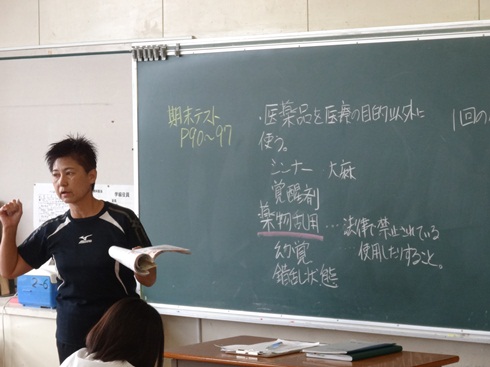 期末テスト
P90〜97
・医薬品を医療の目的以外に
使う。
シンナー 大麻
覚醒剤
薬物乱用…法律で禁止されている
使用したりすること。
幻覚
錯乱状態
1回の
MIZUNO
2-5